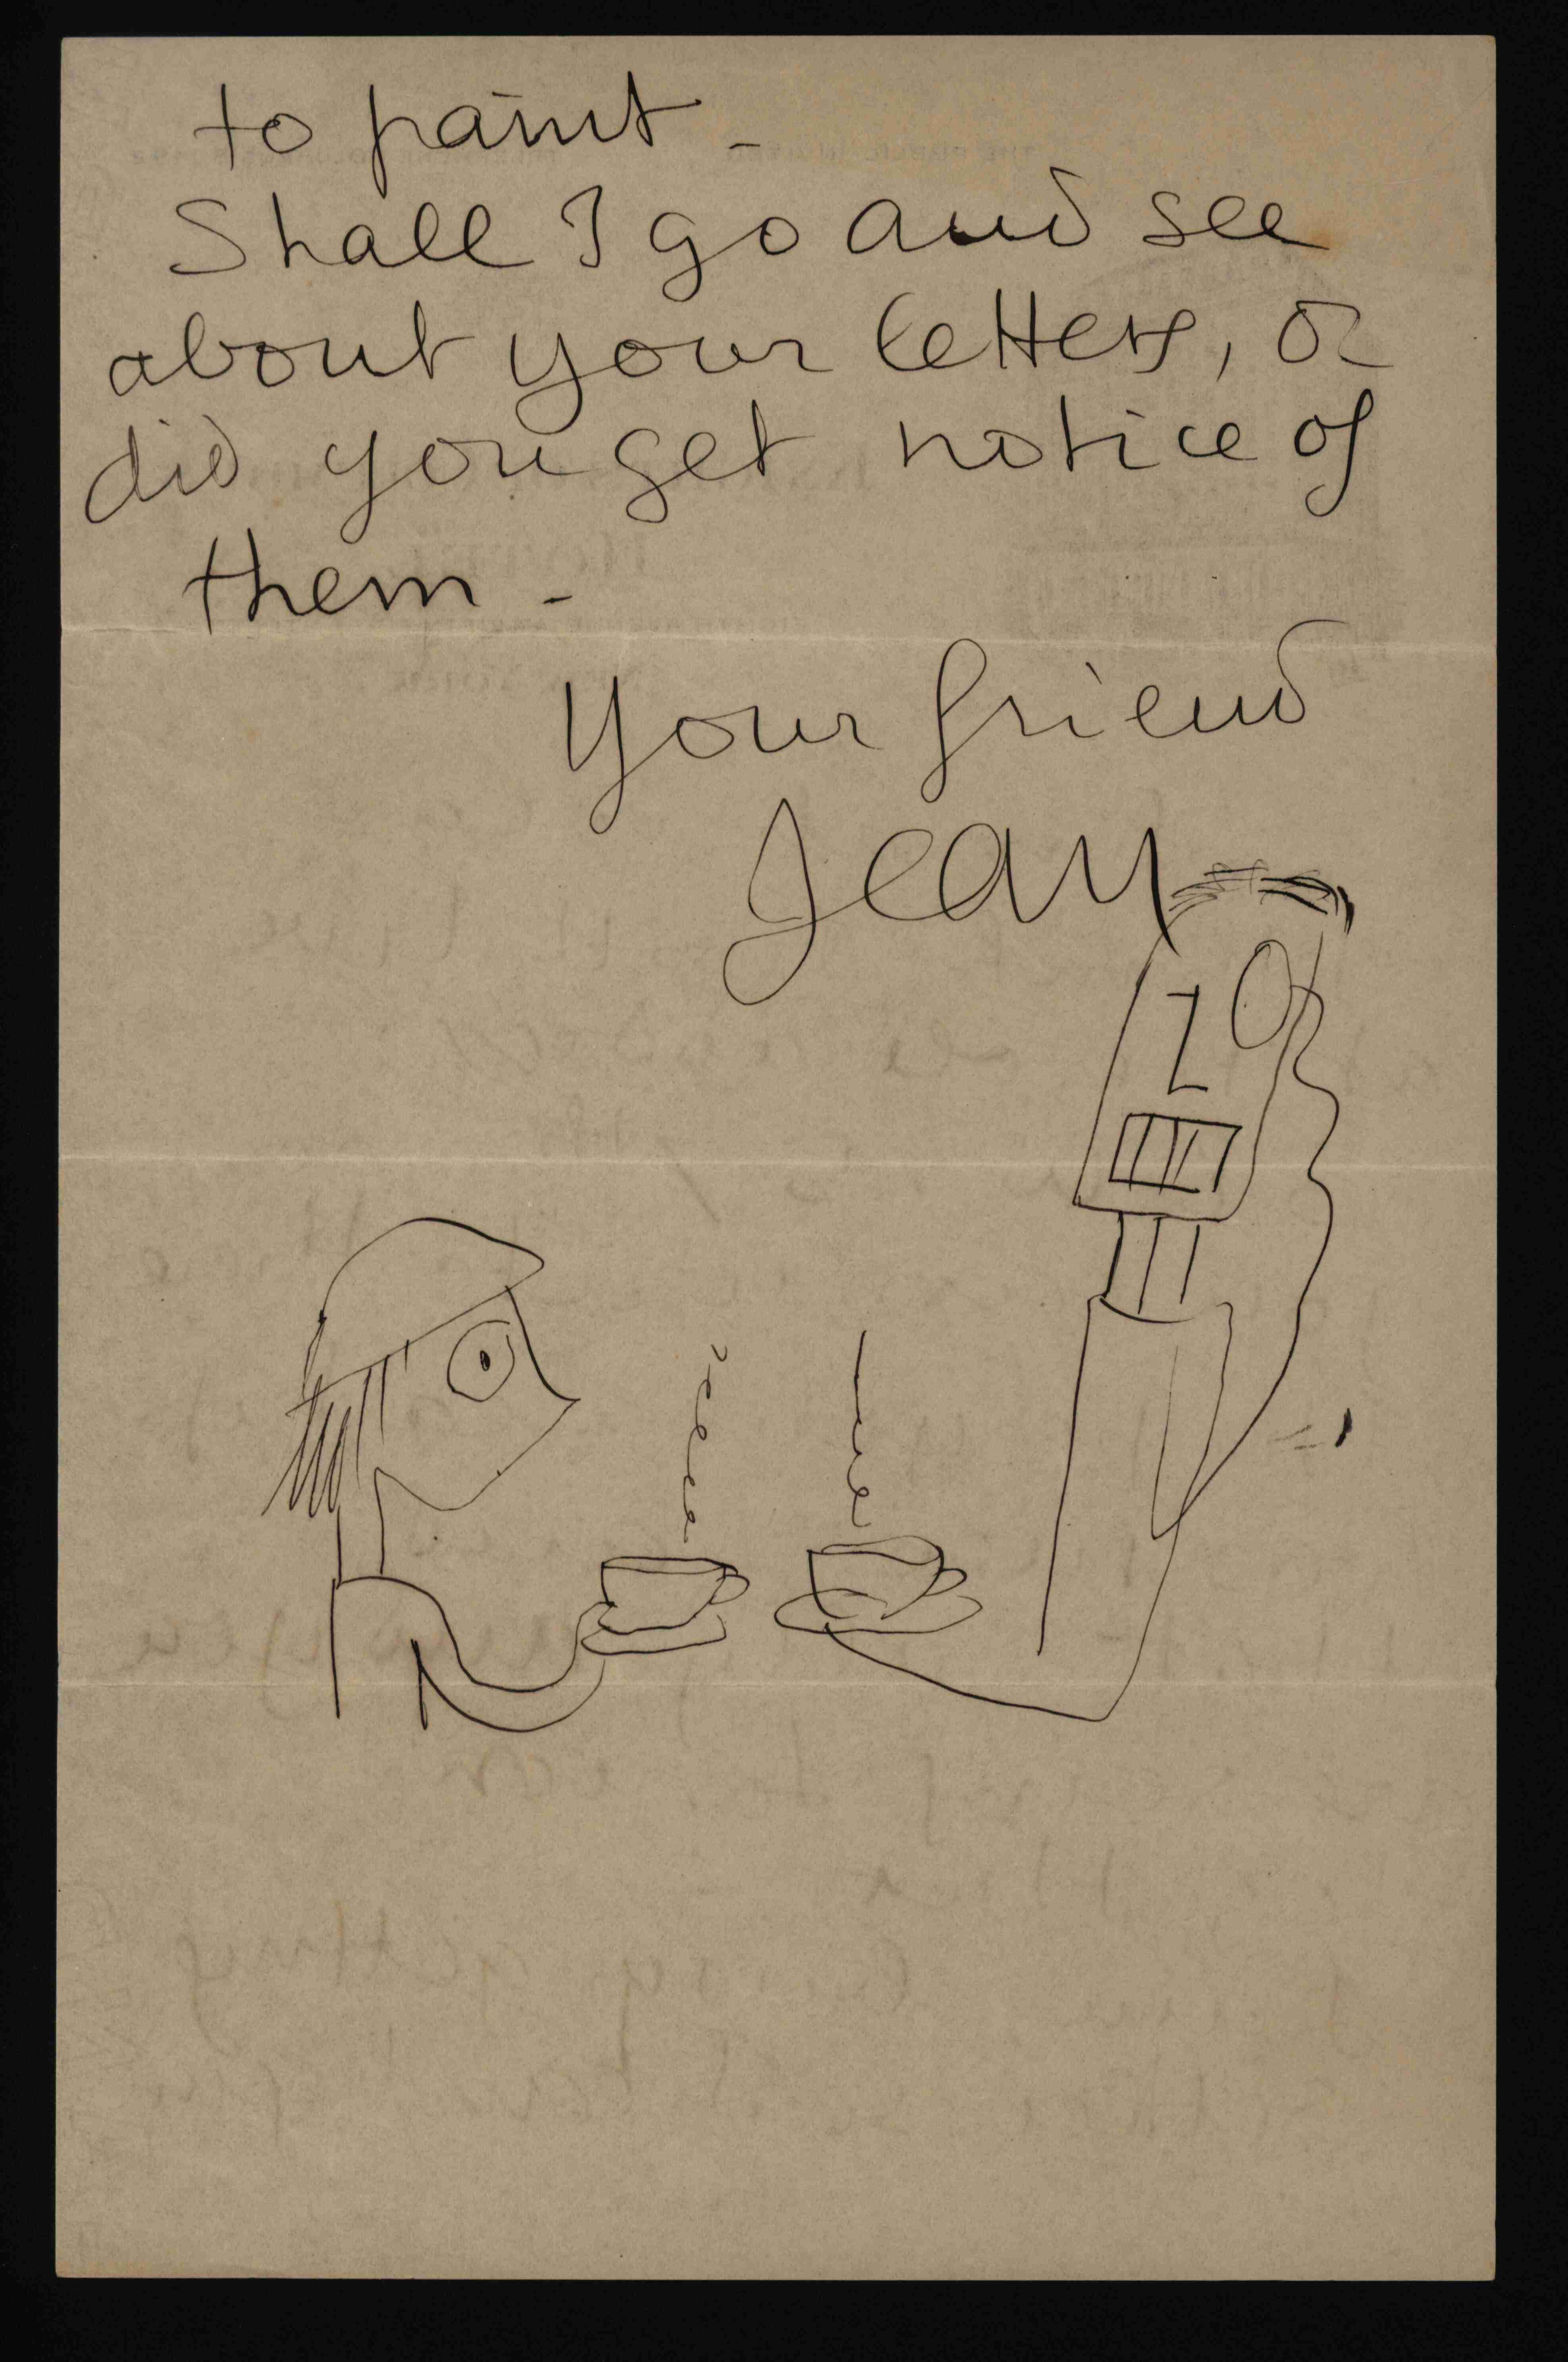 to paint -
Shall I go and see
about your letters, or
did you get notice of
them -
Your friend
Jean